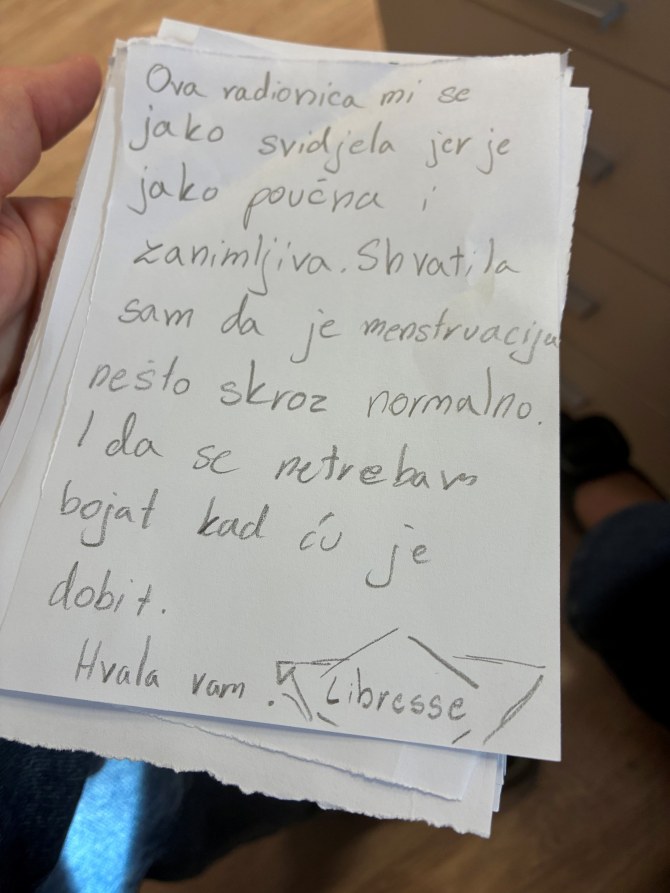 Ova radionica mi se
jako svidjela jer je
jako poučna i
zanimljiva. Shvatila
sam da je menstruacija
nešto skroz normalno.
I da se netrebam
bojat kad ću je
dobit.
Hvala vam. Libresse